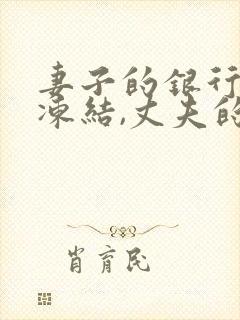 妻子的银行
凍结,丈夫的
肖育民